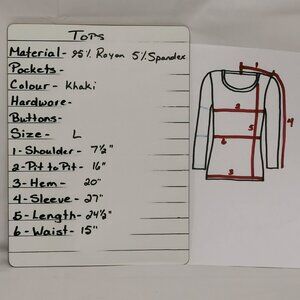 Tops
Material- 95% Rayon 5% Spandex
Pockets-
Colour- Khaki
Hardware-
Buttons-
Size- L
1-Shoulder- 7½"
2-Pit to Pit- 16"
3-Hem- 20"
4-Sleeve- 27"
5-Length- 24½"
6-Waist- 15"
1
2
5
6
3
4